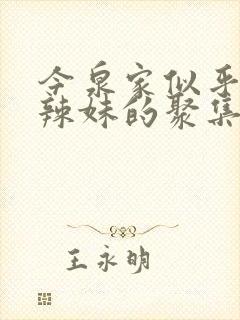 今泉家似乎
辣妹的聚集
王永明